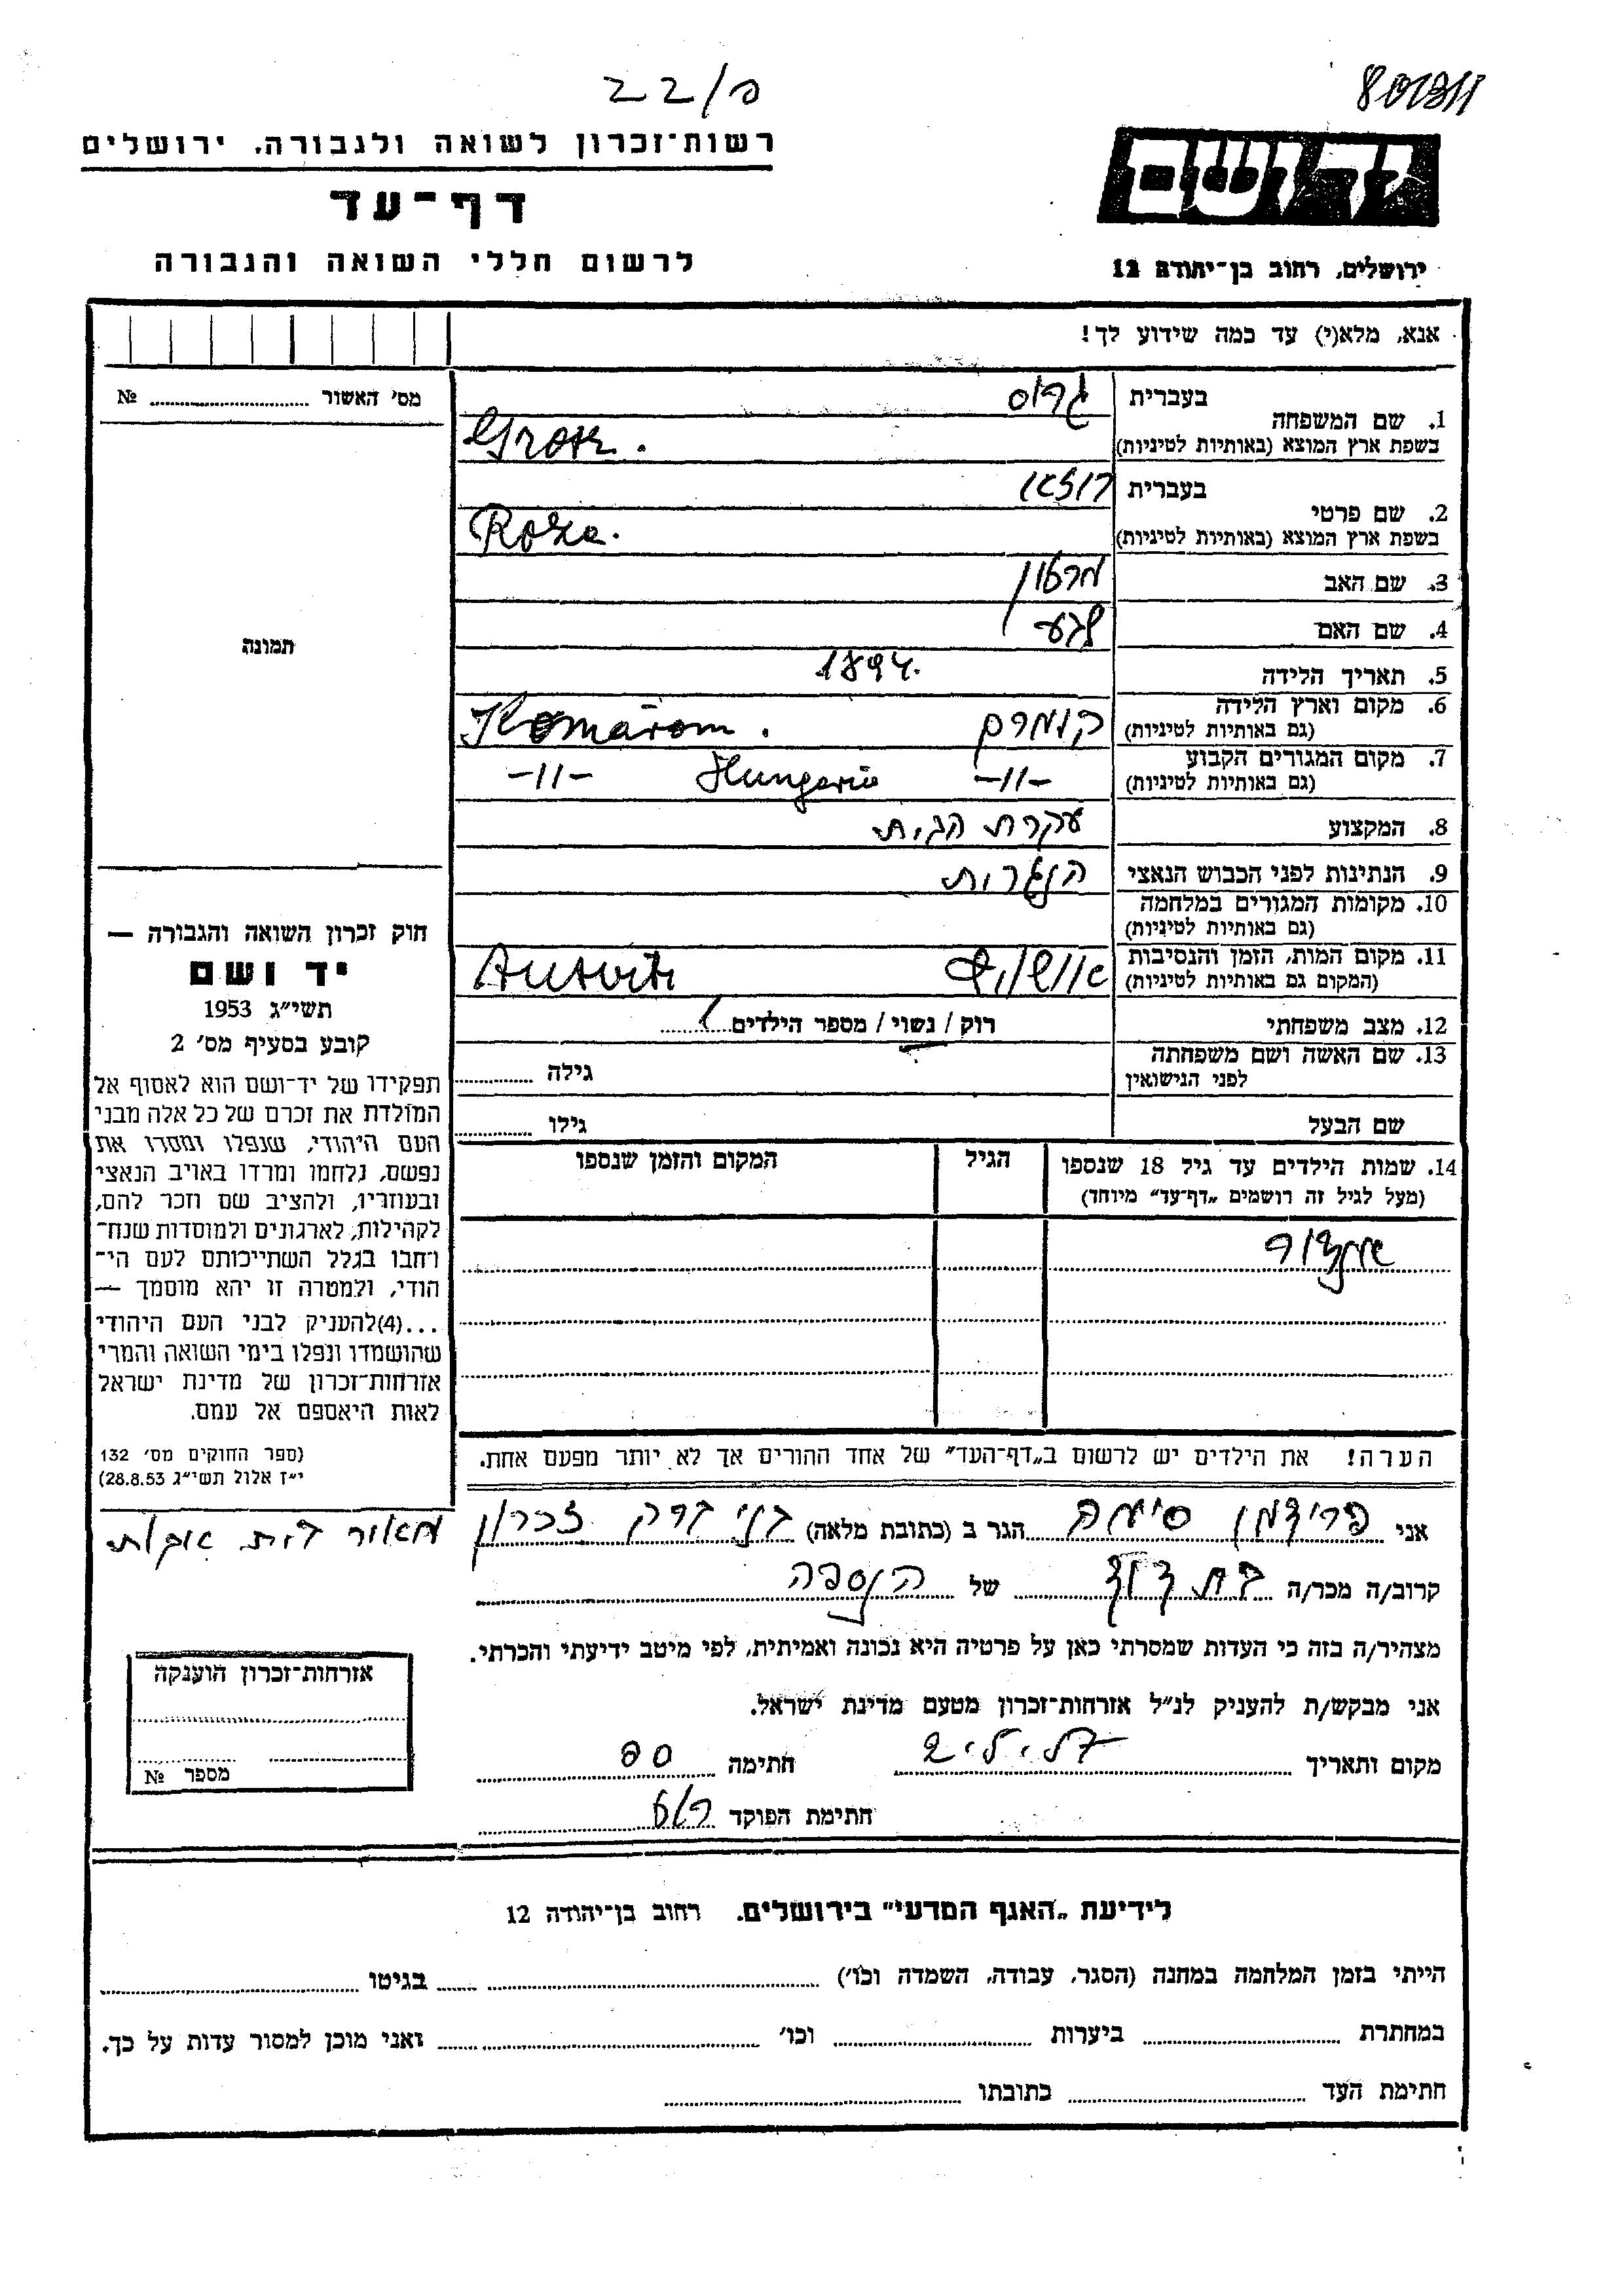 22/פ
רשות־זכרון לשואה ולגבורה, ירושלים
דף־עד
לרשום חללי השואה והגבורה
יד ושם
ירושלים, רחוב בן־יהודה 12
אנא, מלא(י) עד כמה שידוע לך!
מס׳ האשור № ........
תמונה
1. שם המשפחה
בעברית גרוס
בשפת ארץ המוצא (באותיות לטיניות) Grosz.
2. שם פרטי
בעברית
בשפת ארץ המוצא (באותיות לטיניות) Roza.
3. שם האב מרטון
4. שם האם
5. תאריך הלידה 1894.
6. מקום וארץ הלידה
(גם באותיות לטיניות) קומרם Komárom.
7. מקום המגורים הקבוע
(גם באותיות לטיניות) -11- Hungaria -11-
8. המקצוע עקרת הבית
9. הנתינות לפני הכבוש הנאצי הונגרית
10. מקומות המגורים במלחמה
(גם באותיות לטיניות)
11. מקום המות, הזמן והנסיבות
(המקום גם באותיות לטיניות) אושויץ Ausvitz
12. מצב משפחתי רוק / נשוי / מספר הילדים 1
13. שם האשה ושם משפחתה
לפני הנישואין גילה ........
שם הבעל גילו ........
14. שמות הילדים עד גיל 18 שנספו
(מעל לגיל זה רושמים „דף־עד״ מיוחד)
הגיל
המקום והזמן שנספו
הערה! את הילדים יש לרשום ב„דף־העד״ של אחד ההורים אך לא יותר מפעם אחת.
חוק זכרון השואה והגבורה —
יד ושם
תשי״ג 1953
קובע בסעיף מס׳ 2
תפקידו של יד־ושם הוא לאסוף אל
המולדת את זכרם של כל אלה מבני
העם היהודי, שנפלו ומסרו את
נפשם, נלחמו ומרדו באויב הנאצי
ובעוזריו, ולהציב שם וזכר להם,
לקהילות, לארגונים ולמוסדות שנח־
רחבו בגלל השתייכותם לעם הי־
הודי, ולמטרה זו יהא מוסמך —
...(4)להעניק לבני העם היהודי
שהושמדו ונפלו בימי השואה והמרי
אזרחות־זכרון של מדינת ישראל
לאות היאספם אל עמם.
(ספר החוקים מס׳ 132
י״ז אלול תשי״ג 28.8.53)
אני פרידמן סימה הגר ב (כתובת מלאה) בני ברק זכרון מאור בית אבות
קרוב/ה מכר/ה בת דוד של הנספה
מצהיר/ה בזה כי העדות שמסרתי כאן על פרטיה היא נכונה ואמיתית, לפי מיטב ידיעתי והכרתי.
אני מבקש/ת להעניק לנ״ל אזרחות־זכרון מטעם מדינת ישראל.
מקום ותאריך חתימה
חתימת הפוקד
אזרחות־זכרון הוענקה
מספר №
לידיעת „האגף המדעי״ בירושלים, רחוב בן־יהודה 12
הייתי בזמן המלחמה במחנה (הסגר, עבודה, השמדה וכו׳) ........ בגיטו ........
במחתרת ........ ביערות ........ וכו׳ ........ ואני מוכן למסור עדות על כך.
חתימת העד ........ כתובתו ........